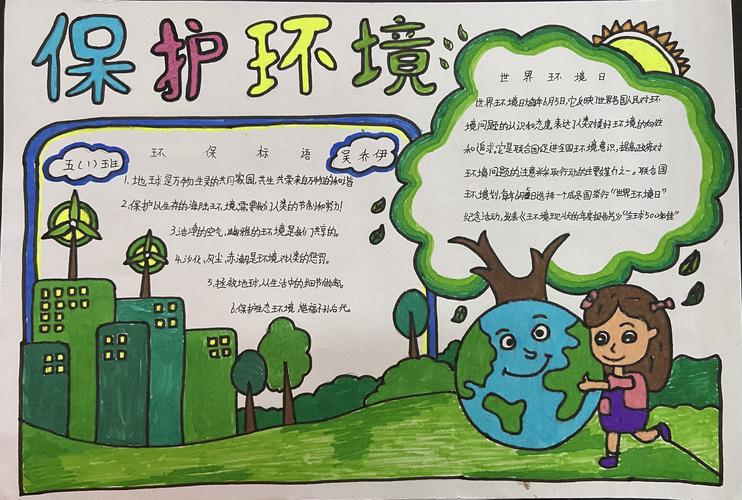 保护环境
五(1)班
吴乔伊
环保标语
1.地球是万物生灵的共同家园,共生共荣来自万物的和谐
2.保护以生存的海陆环境,需要我们人类的节制和努力!
3.洁净的空气,幽雅的环境是我们共享的。
4.沙化、风尘、赤潮是环境对人类的惩罚。
5.拯救地球,从生活中的细节做起。
6.保护生态环境,造福子孙后代。
世界环境日
世界环境日为每年6月5日,它反映了世界各国人民对环
境问题的认识和态度,表达了人类对美好环境的向往
和追求,它是联合国促进全国环境意识,提高政府对
环境问题的注意并采取行动的主要媒介之一。联合国
环境规划,每年6月5日选择一个成员国举行“世界环境日”
纪念活动,发表《环境现状的年度报告书》“全球500佳”